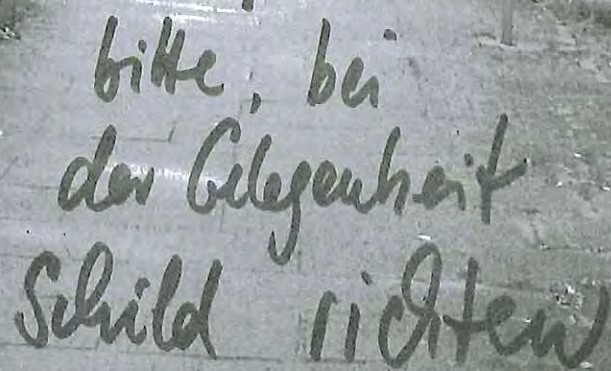 bitte, bei
der Gelegenheit
Schild richten